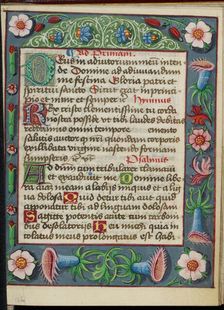 ad Primam.
Deus in adiutorium meum inten
de Domine ad adiuvandum
me festina Gloria patri et
filio et
spiritui sancto Sicut erat in prin
cipio et nunc et semper Hymnus
Christi
nostra posset ut tibi laudes debitas
reddamus omni tempore
salutis auctor
illibata virgine nascendo formam
sumpseris Psalmus
Ad dominum cum tribularer clamavi
et exaudivit me Domine libe
ra animam meam a labijs iniquis et a lin
gua dolosa Quid detur tibi aut quid
apponatur tibi ad linguam dolosam
Sagitte potentis acute cum carboni
bus desolatorijs Heu michi quia in
colatus meus prolongatus est habi